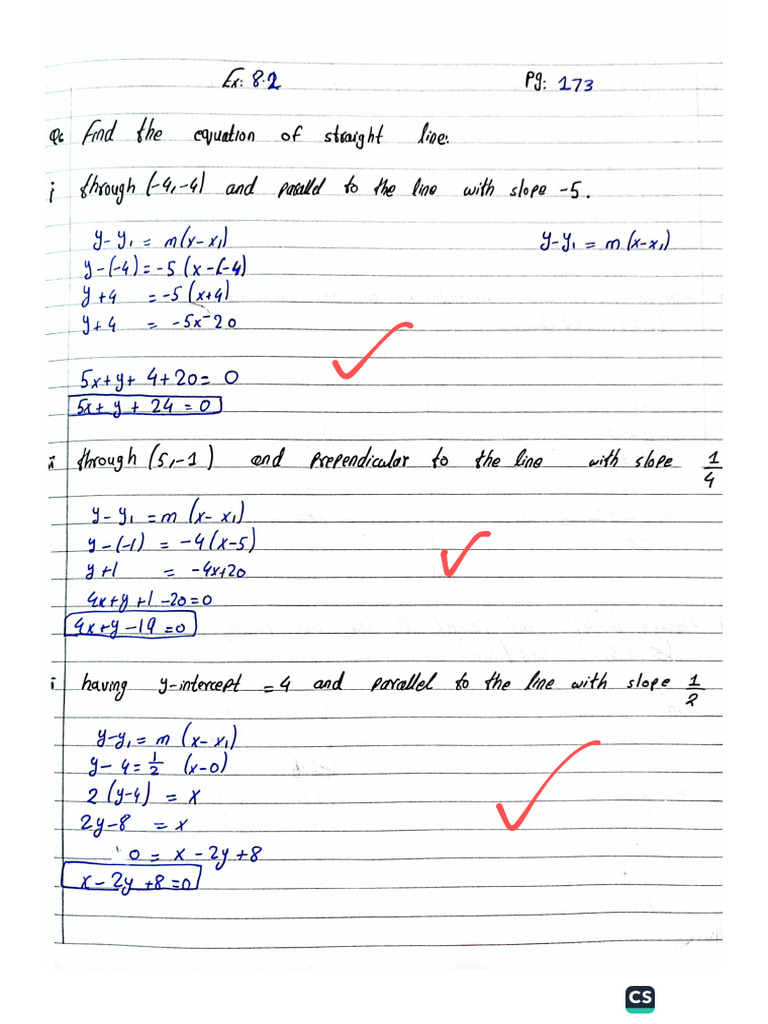 Ex: 8.2 Pg: 173
Q6 Find the equation of straight line:
i through (-4,-4) and parallel to the line with slope -5.
y-y₁ = m(x-x₁) y-y₁ = m(x-x₁)
y-(-4) = -5(x-(-4)
y+4 = -5(x+4)
y+4 = -5x-20
5x+y+4+20=0
5x+y+24=0
ii through (5,-1) and prependicular to the line with slope 1/4
y-y₁ = m(x-x₁)
y-(-1) = -4(x-5)
y+1 = -4x+20
4x+y+1-20=0
4x+y-19=0
i having y-intercept = 4 and parallel to the line with slope 1/2
y-y₁ = m(x-x₁)
y-4 = 1/2 (x-0)
2(y-4) = x
2y-8 = x
0 = x-2y+8
x-2y+8=0
CS